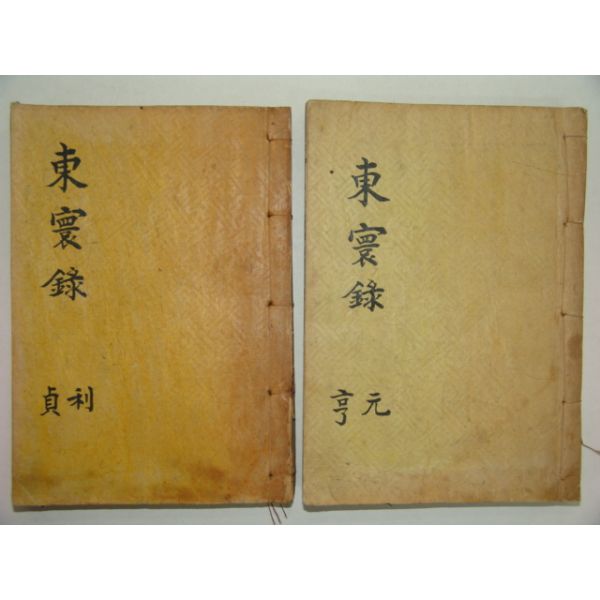 東寰錄
利貞
東寰錄
元亨